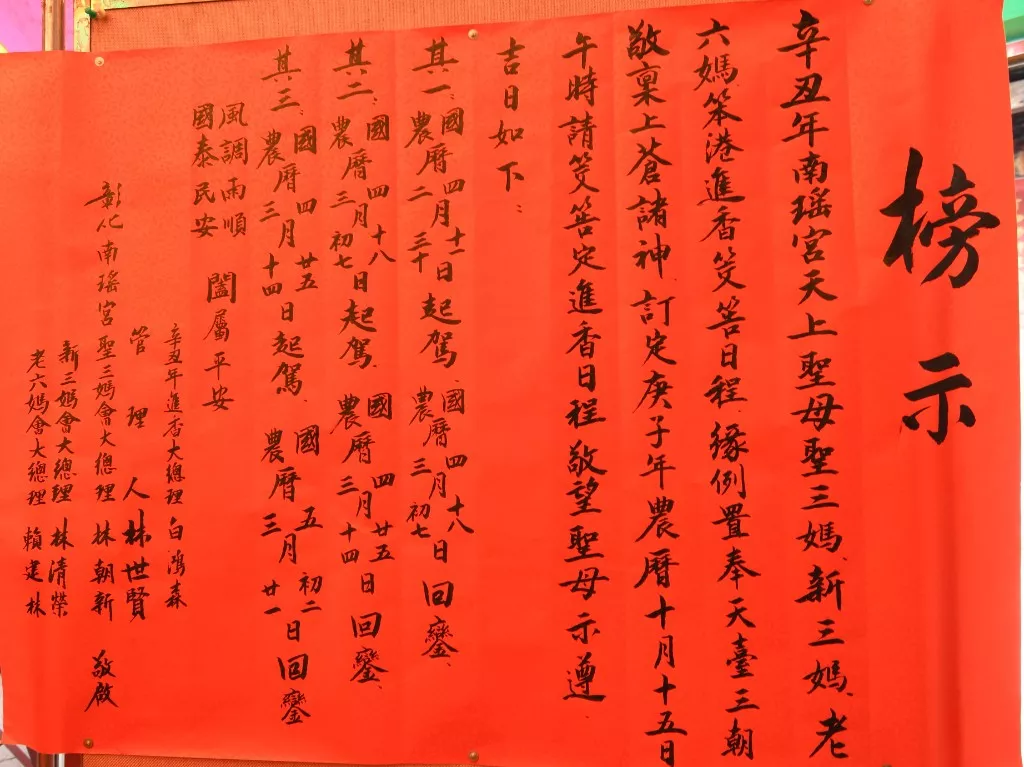 榜示
辛丑年南瑤宮天上聖母聖三媽、新三媽、老
六媽笨港進香筊筶日程、緣例置奉天臺三朝
敬稟上蒼諸神、訂定庚子年農曆十月十五日
午時請筊筶定進香日程敬望聖母示遵
吉日如下：
其一：國農曆四二月十一三十日起駕、國農曆四三月十八初七日回鑾、
其二：國農曆四三月十八初七日起駕、國農曆四三月廿五十四日回鑾、
其三：國農曆四三月廿五十四日起駕、國農曆五三月初二廿一日回鑾
風調雨順
國泰民安
闔屬平安
辛丑年進香大總理 白鴻森
管理人 林世賢
彰化南瑤宮聖三媽會大總理 林朝新 敬啟
新三媽會大總理 林清榮
老六媽會大總理 賴建林